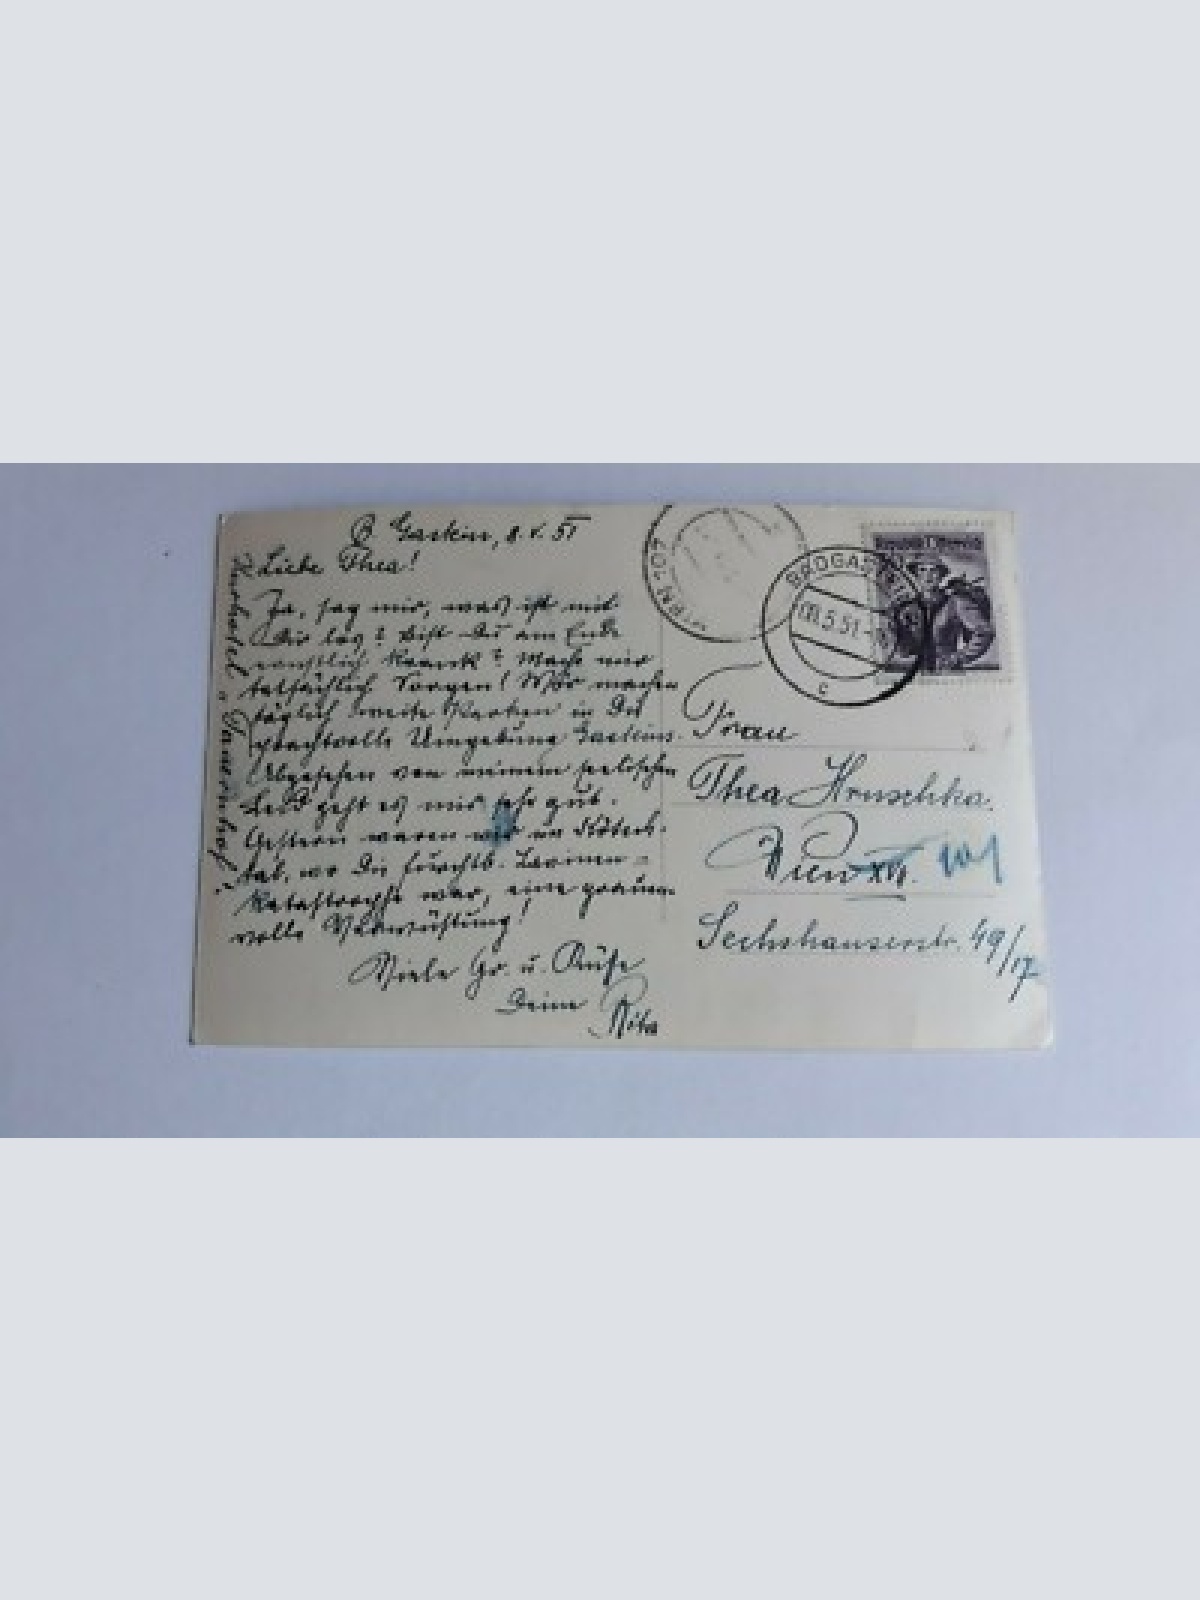 B. Gastein, 8.V.51
Liebe Thea!
Ja, sag mir, was ist mit
Dir los? Bist Du am Ende
ernstlich krank? Mache mir
tatsächlich Sorgen! Wir machen
täglich weite in die
prachtvolle Umgebung Gasteins.
Abgesehen von meinem seelischen
Leid geht es mir sehr gut.
Gestern waren wir im Kötsch-
tal, wo die furchtb. Lawinen-
katastrophe war, eine grauen-
volle Verwüstung!
Viele Gr. u. Küße
Deine Rita
WIEN 101
BADGASTEIN
5.51
c
Frau
Thea Hruschka
Wien XIV. 101
Sechshauserstr. 49/17